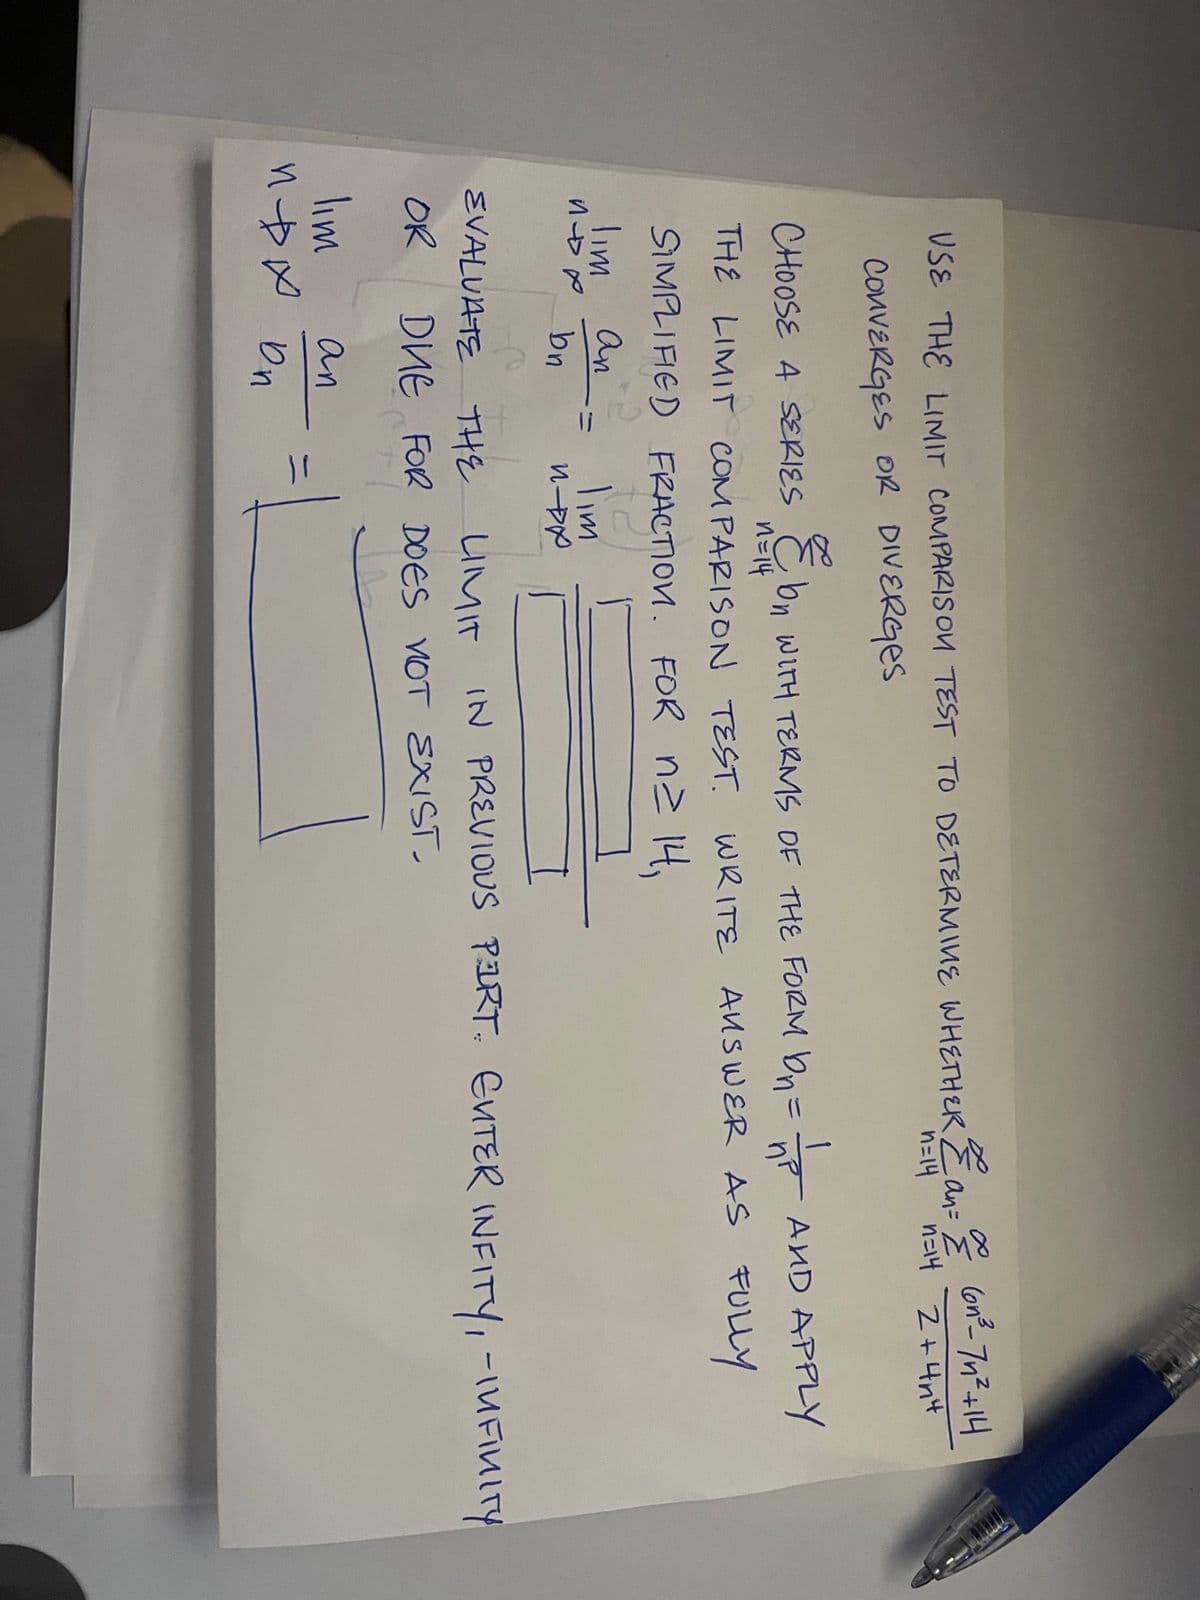 USE THE LIMIT COMPARISON TEST TO DETERMINE WHETHER ∞Σn=14 an = ∞Σn=14 (6n³-7n²+14)/(2+4n⁴)
CONVERGES OR DIVERGES
CHOOSE A SERIES ∞Σn=14 bn WITH TERMS OF THE FORM bn = 1/nᵖ AND APPLY
THE LIMIT COMPARISON TEST. WRITE ANSWER AS FULLY
SIMPLIFIED FRACTION. FOR n≥14,
lim n→∞ an/bn = lim n→∞
EVALUATE THE LIMIT IN PREVIOUS PART. ENTER INFITY, -INFINITY
OR DNE FOR DOES NOT EXIST.
lim n→∞ an/bn =